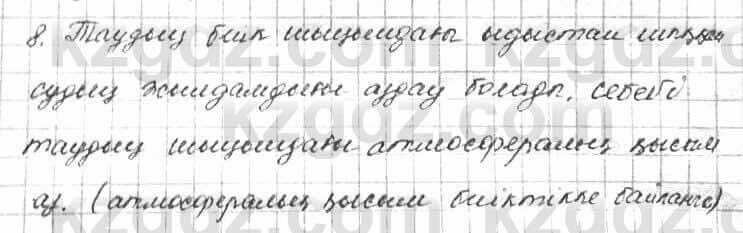 8. Таудың биік шыңындағы ыдыстан шыққан
судың жылдамдығы аздау болады, себебі
таудың шыңындағы атмосфералық қысым
аз. (атмосфералық қысым биіктікке байланыс)